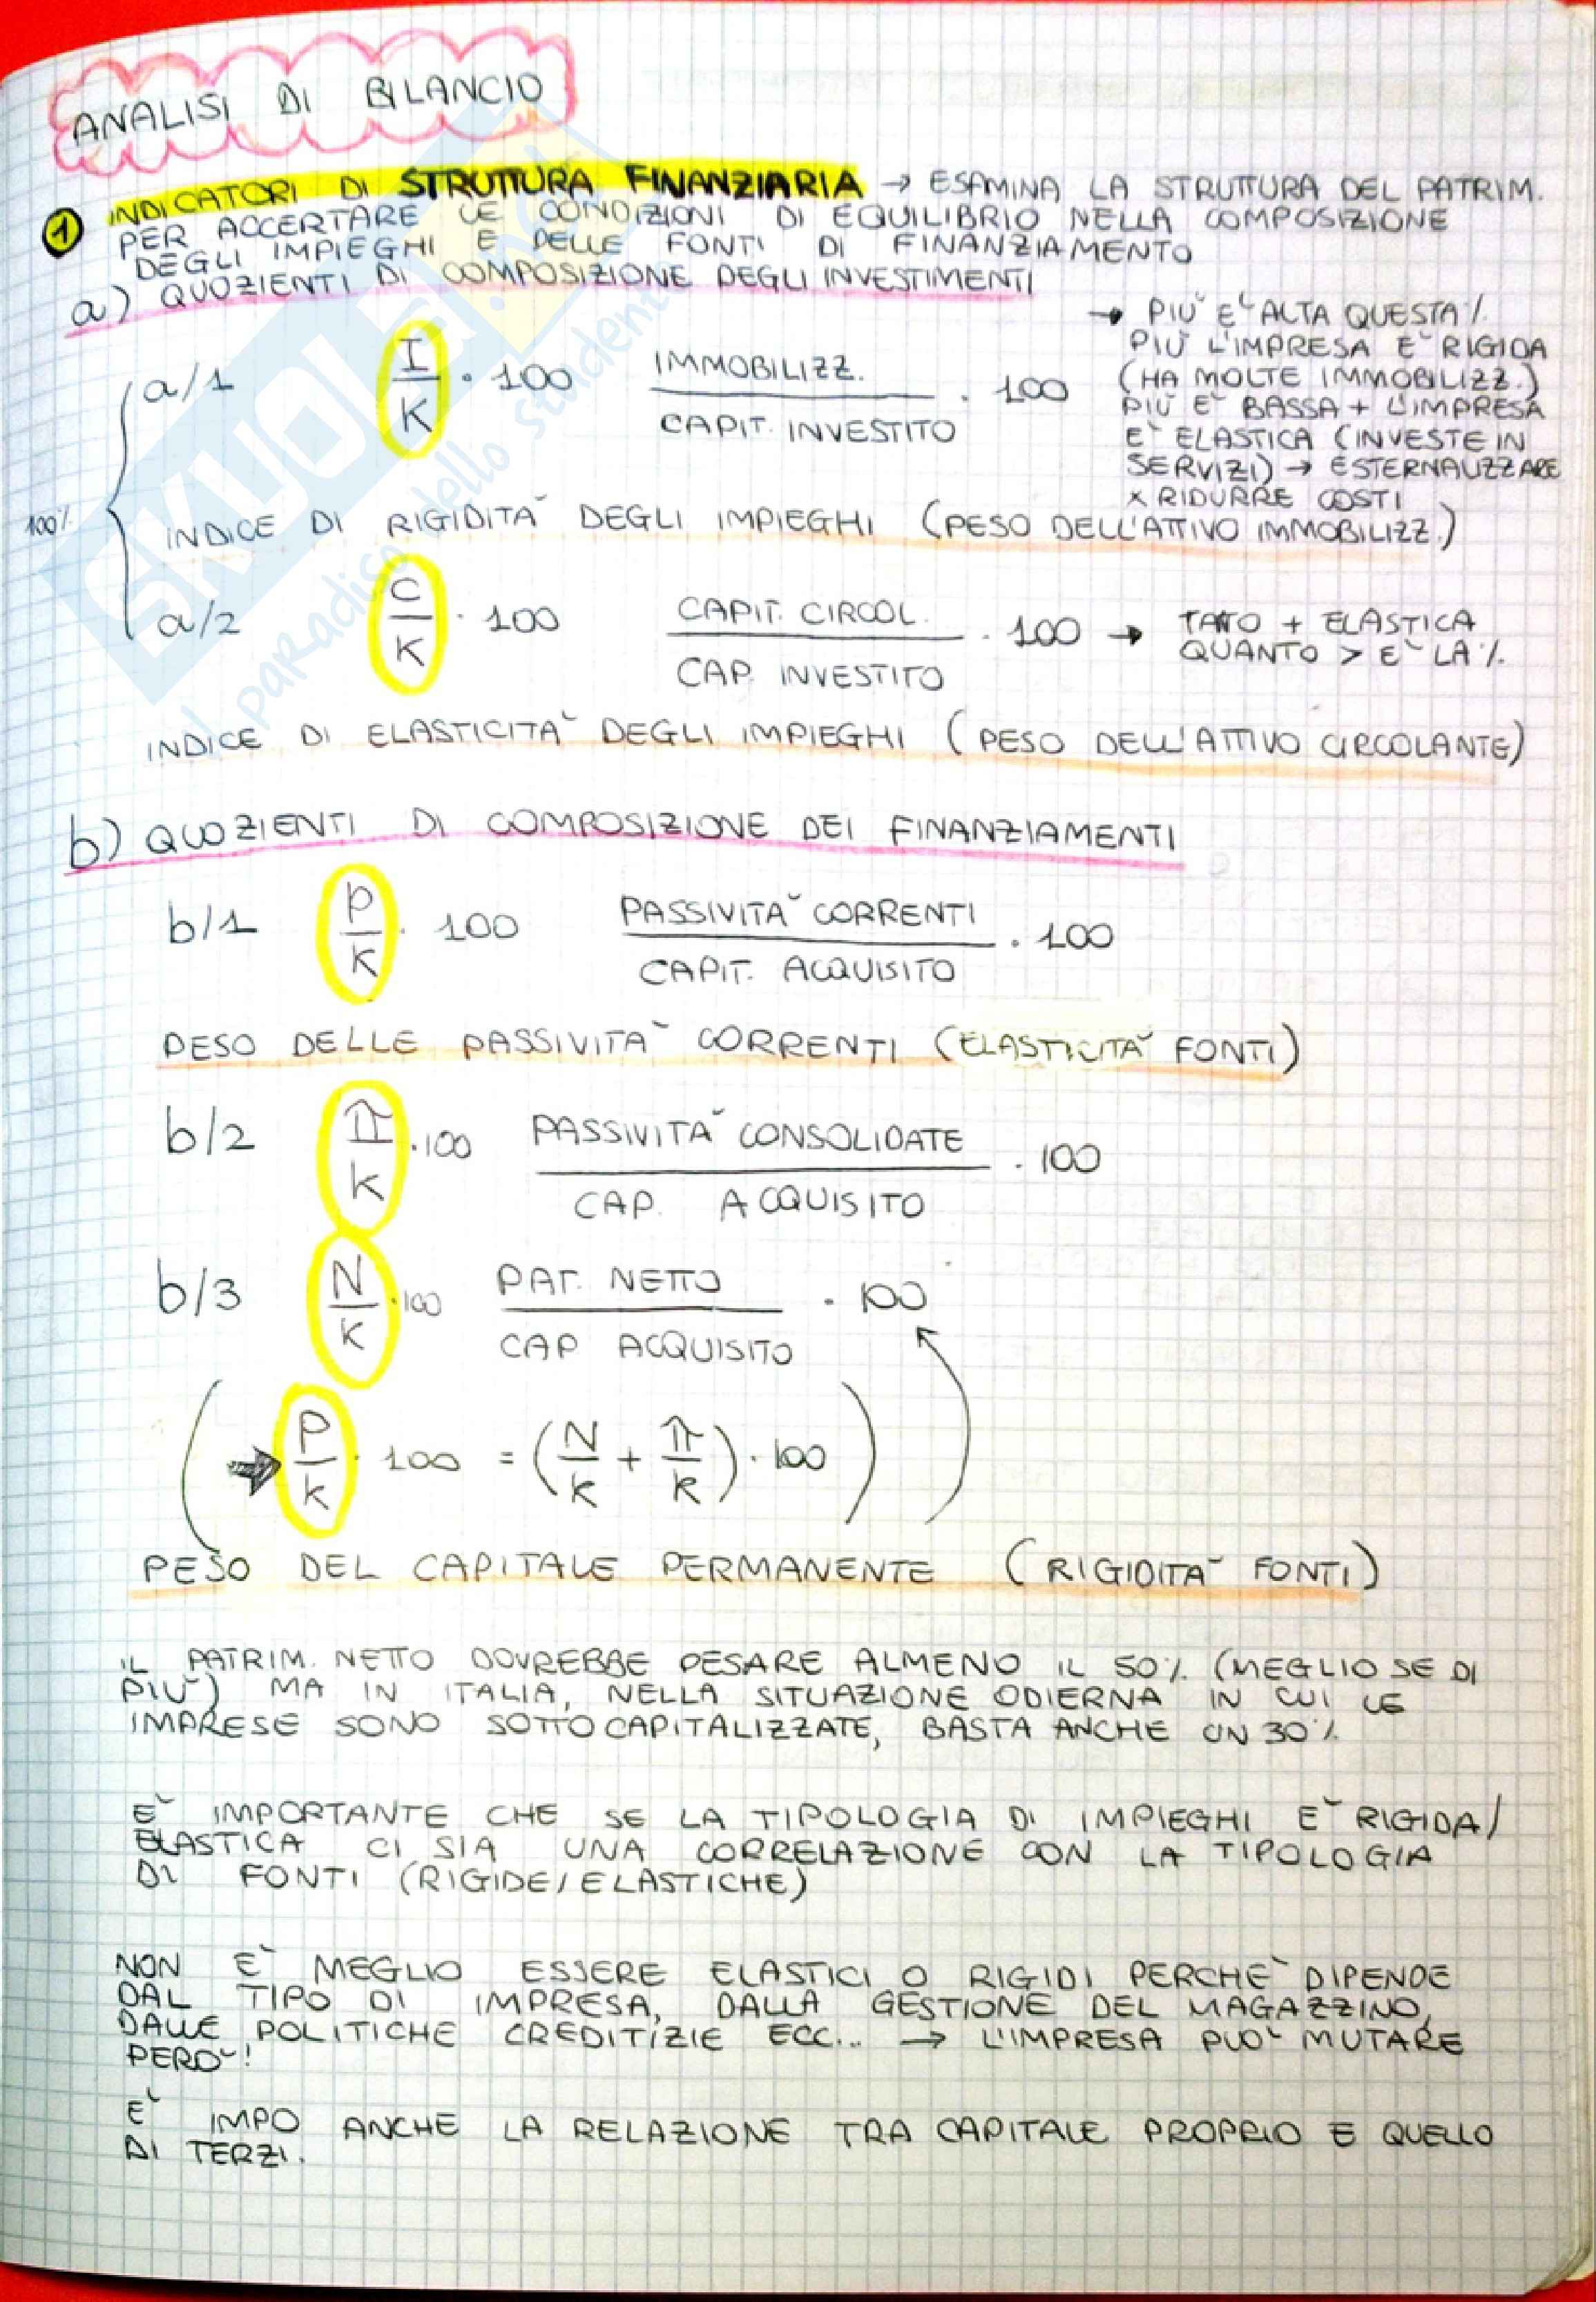 ANALISI DI BILANCIO
1 INDICATORI DI STRUTTURA FINANZIARIA → ESAMINA LA STRUTTURA DEL PATRIM.
PER ACCERTARE LE CONDIZIONI DI EQUILIBRIO NELLA COMPOSIZIONE
DEGLI IMPIEGHI E DELLE FONTI DI FINANZIAMENTO
a) QUOZIENTI DI COMPOSIZIONE DEGLI INVESTIMENTI
100%
a/1 I/K · 100 IMMOBILIZZ./CAPIT. INVESTITO · 100
→ PIÙ È ALTA QUESTA %
PIÙ L'IMPRESA È RIGIDA
(HA MOLTE IMMOBILIZZ.)
PIÙ È BASSA + L'IMPRESA
È ELASTICA (INVESTE IN
SERVIZI) → ESTERNALIZZARE
X RIDURRE COSTI
INDICE DI RIGIDITÀ DEGLI IMPIEGHI (PESO DELL'ATTIVO IMMOBILIZZ.)
a/2 C/K · 100 CAPIT. CIRCOL./CAP. INVESTITO · 100 → TATO + ELASTICA
QUANTO > È LA %
INDICE DI ELASTICITÀ DEGLI IMPIEGHI (PESO DELL'ATTIVO CIRCOLANTE)
b) QUOZIENTI DI COMPOSIZIONE DEI FINANZIAMENTI
b/1 P/K · 100 PASSIVITÀ CORRENTI/CAPIT. ACQUISITO · 100
PESO DELLE PASSIVITÀ CORRENTI (ELASTICITÀ FONTI)
b/2 π/K · 100 PASSIVITÀ CONSOLIDATE/CAP. ACQUISITO · 100
b/3 N/K · 100 PAT. NETTO/CAP ACQUISITO · 100
(➔ P/K · 100 = (N/K + π/K) · 100)
PESO DEL CAPITALE PERMANENTE (RIGIDITÀ FONTI)
IL PATRIM. NETTO DOVREBBE PESARE ALMENO IL 50% (MEGLIO SE DI
PIÙ) MA IN ITALIA, NELLA SITUAZIONE ODIERNA IN CUI LE
IMPRESE SONO SOTTOCAPITALIZZATE, BASTA ANCHE UN 30%
È IMPORTANTE CHE SE LA TIPOLOGIA DI IMPIEGHI È RIGIDA/
ELASTICA CI SIA UNA CORRELAZIONE CON LA TIPOLOGIA
DI FONTI (RIGIDE/ELASTICHE)
NON È MEGLIO ESSERE ELASTICI O RIGIDI PERCHÈ DIPENDE
DAL TIPO DI IMPRESA, DALLA GESTIONE DEL MAGAZZINO,
DALLE POLITICHE CREDITIZIE ECC... → L'IMPRESA PUÒ MUTARE
PERÒ!
È IMPO ANCHE LA RELAZIONE TRA CAPITALE PROPRIO E QUELLO
DI TERZI.
SKUOLA.net
il paradiso dello studente